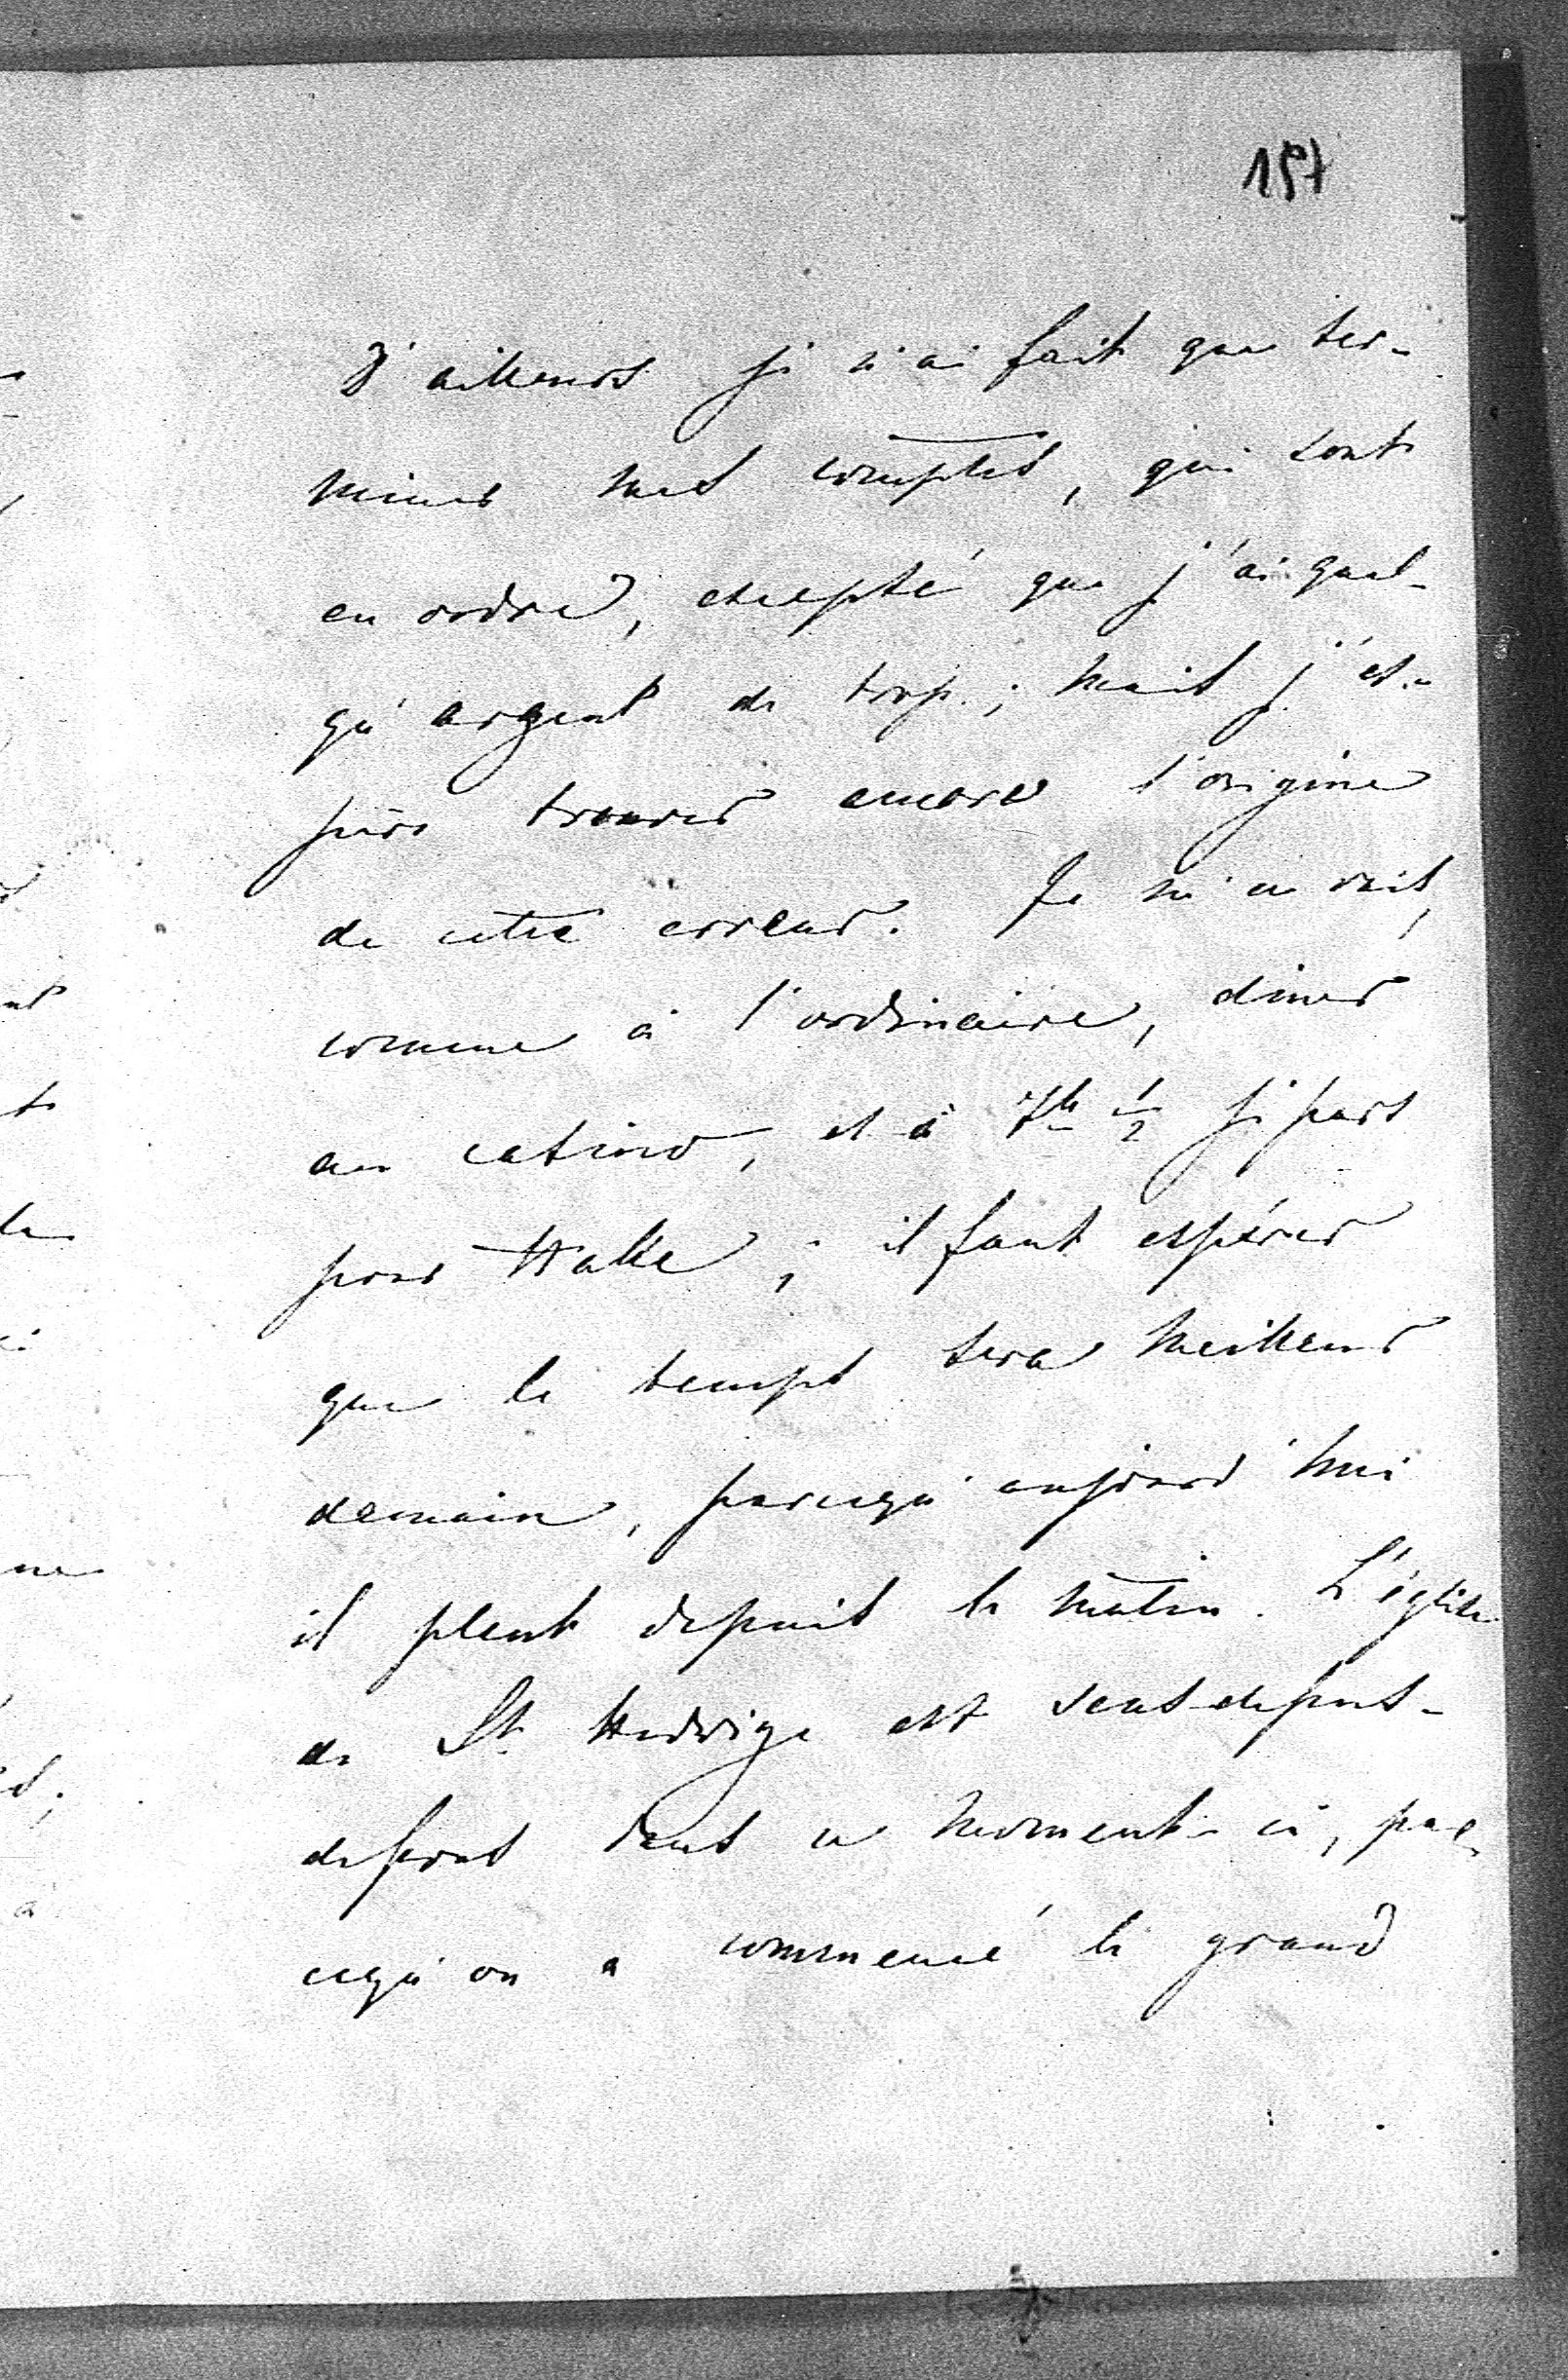 157
D'ailleurs je n'ai fait que ter-
miner mes comptes, qui sont
en ordre, excepté que j'ai quel-
qu'argent de trop; mais j'es-
père trouver encore l'origine
de cette erreur. Je m'en vais,
comme à l'ordinaire, dîner
au casino, et à 7h ½ je pars
pour Halle; il faut espérer
que le temps sera meilleur
demain, parcequ'aujourd'hui
il pleut depuis le matin. L'église
de St. Hedwige est sens-dessus-
dessous dans ce moment-ci, par-
cequ'on a commencé le grand